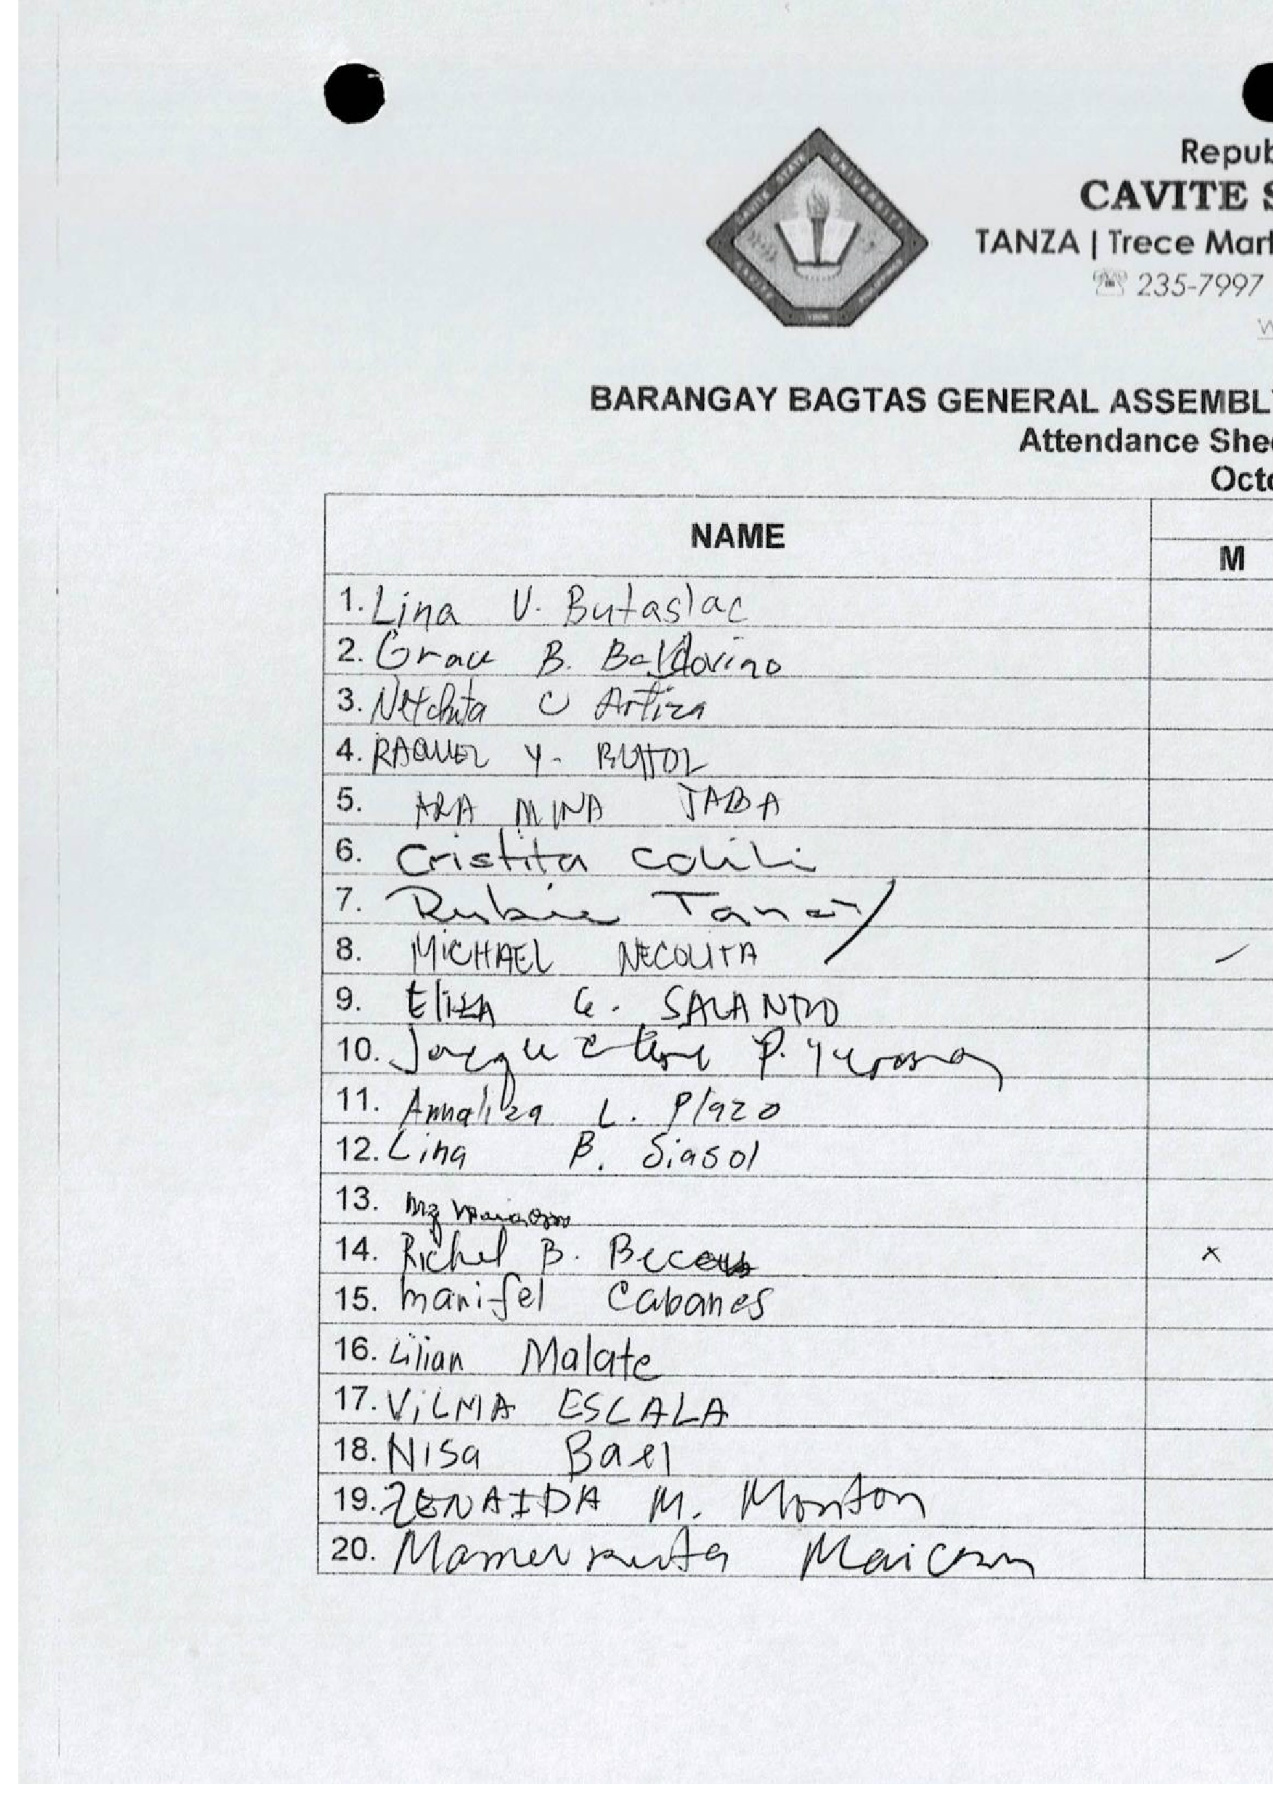 Repub
CAVITE S
TANZA | Trece Mart
☏ 235-7997
BARANGAY BAGTAS GENERAL ASSEMBL
Attendance Shee
Octo
NAME
M
1. Lina V. Butaslac
2. Grace B. Baldovino
3. C Artiza
4. RAQUEL Y. BUTOL
5. ARA MINA JABA
6. Cristita
7. Rubie Tanay
8. MICHAEL NECOLITA
9. Eliza G. SALANTRO
10. P.
11. Annaliza L. Plazo
12. Lina B. Siasol
13.
14. Richel B.
15. Marifel Cabanes
16. Lilian Malate
17. ViLMA ESCALA
18. Nisa Bael
19. ZENAIDA M. Monton
20.